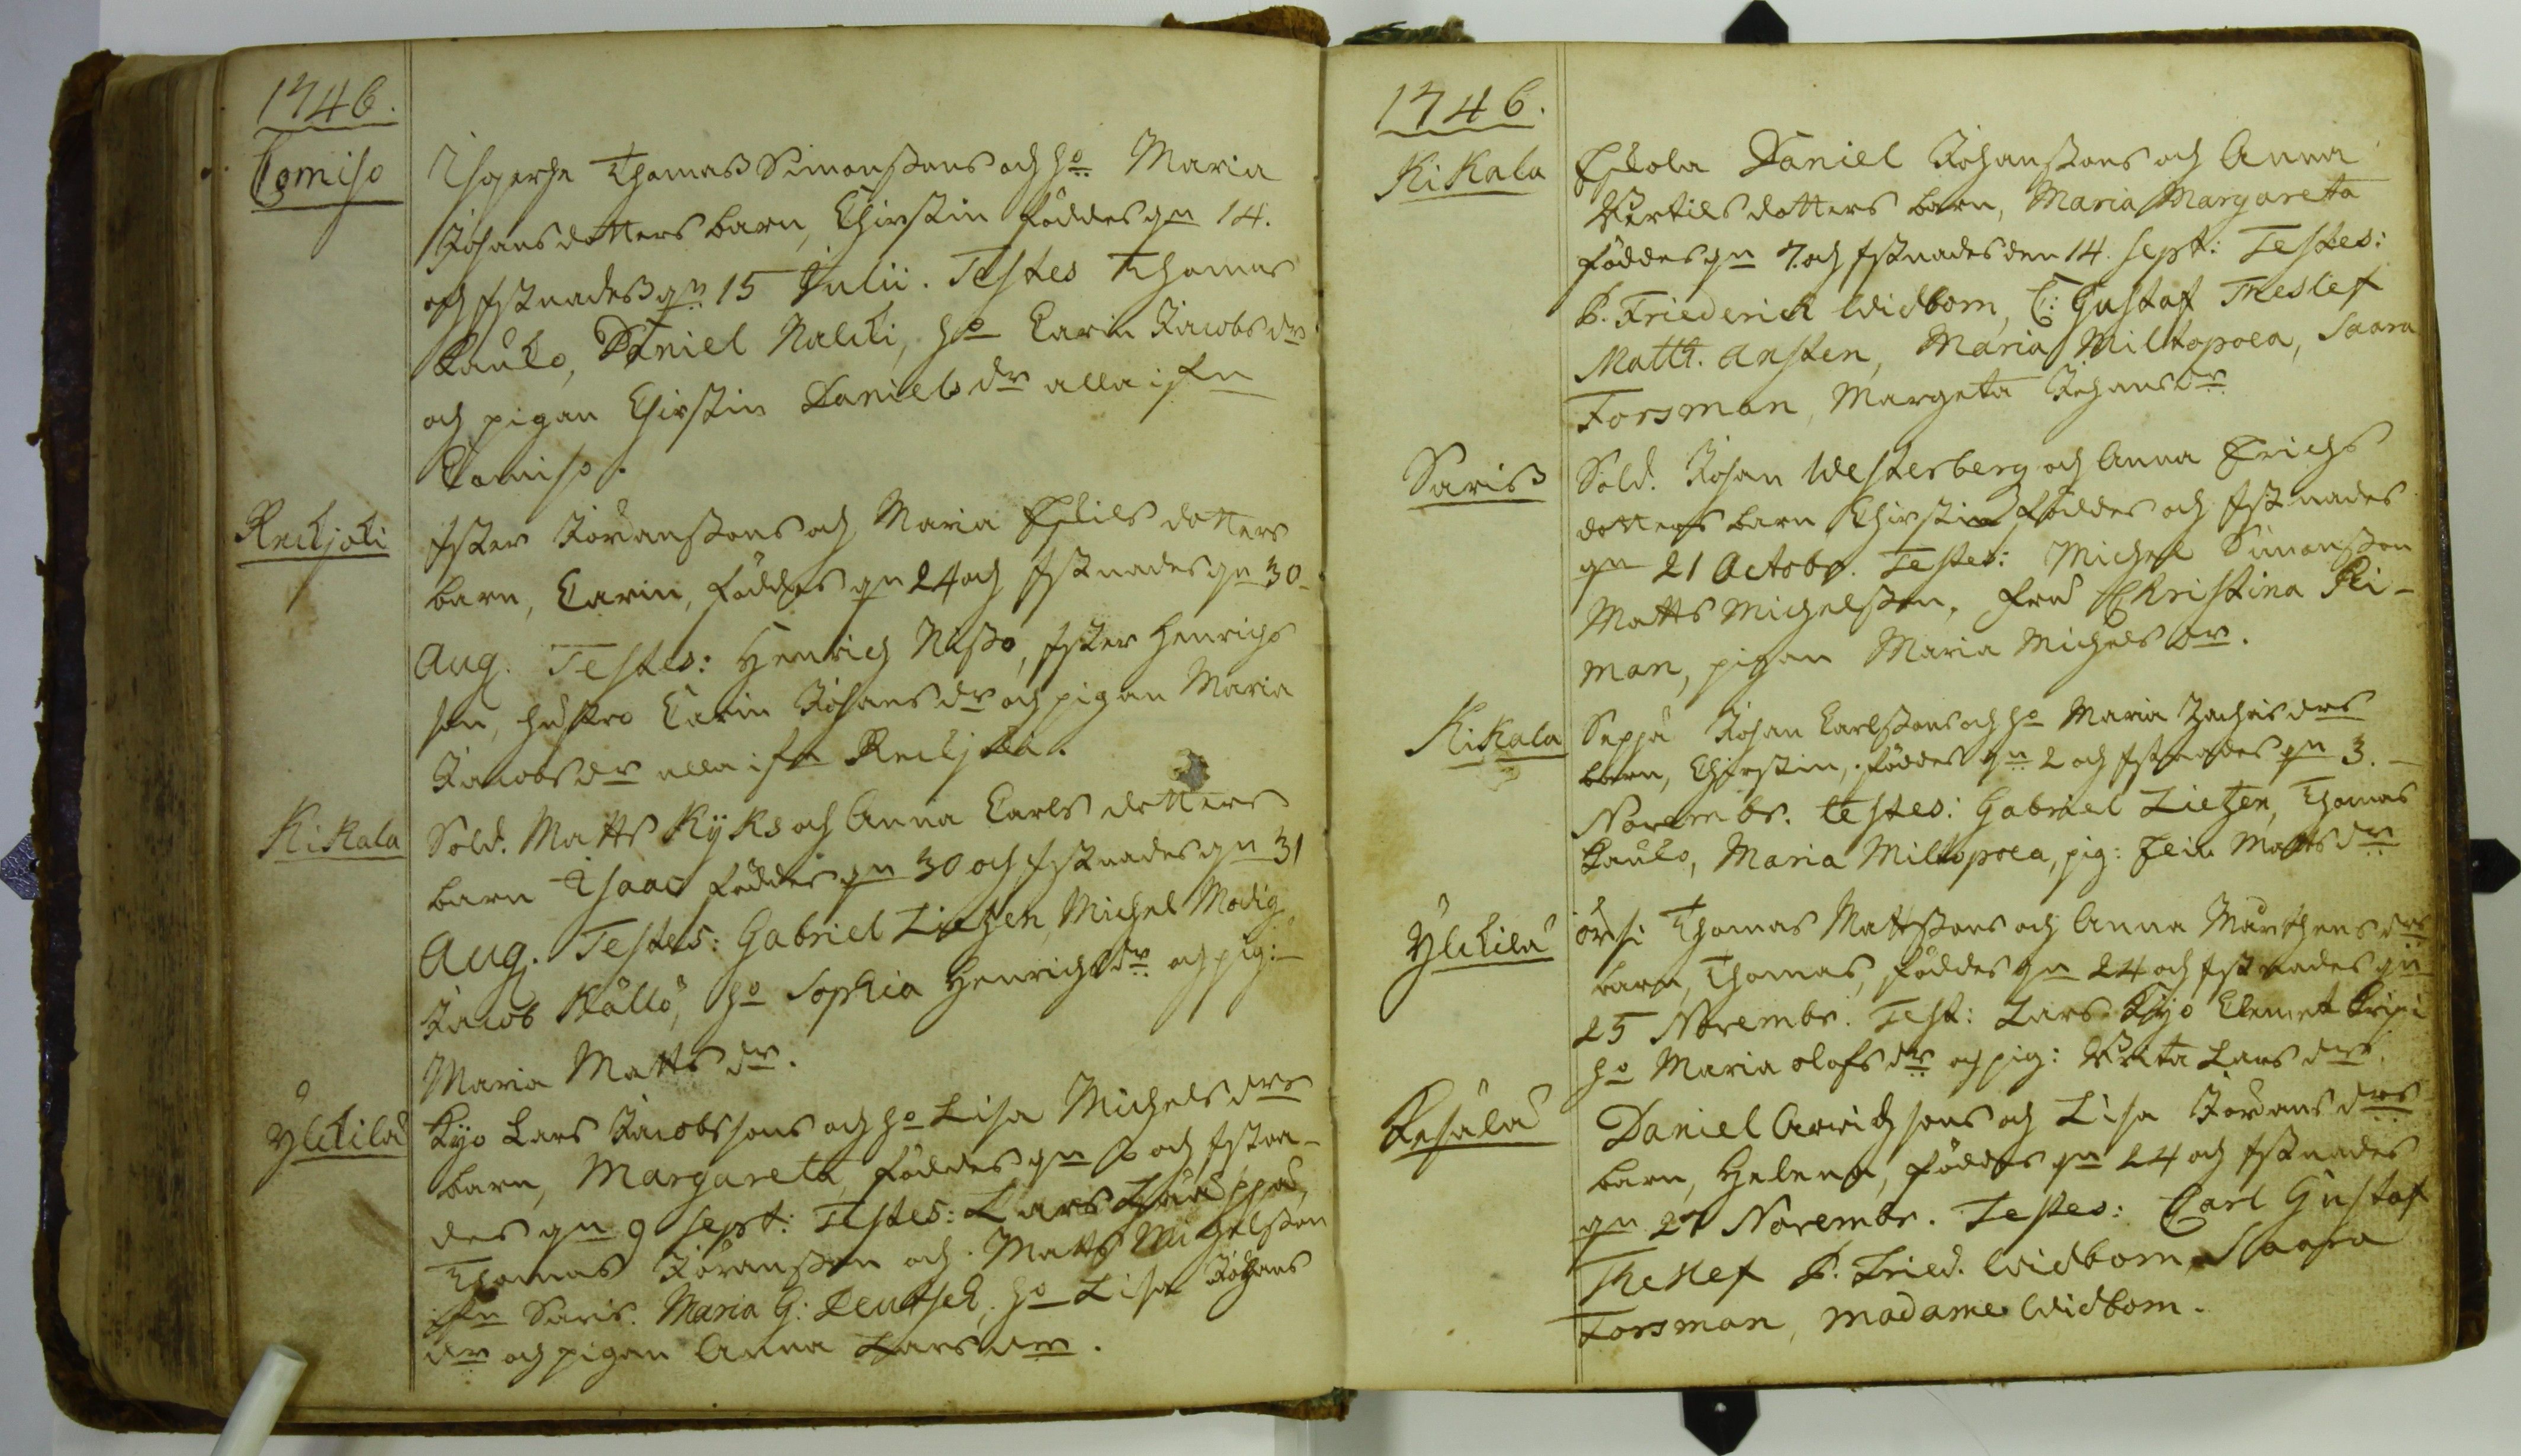 1746.
Comiso
Thomas Simonssons och ho Maria
Johansdotters barn, Chirstin föddes gn 14.
och Xstnades gn 15 Julii. Testes Thomas
Pauko, Daniel Nalcki, ho Carin Jacobs dr
och pigan Chirstin Daniels dr alla ifrn
Comiso.
Reckjoki
Ester Jöranssons och Maria Eskils dotters
barn, Carin, föddes gn 24 och Xstnades gn 30
Aug. Testes: Henrich Nisso, Ester Henrichs
son, hustro Carin Johans dr och pigan Maria
Jacobs dr alla ifn Reckjoki.
Kikala
Sold. Matts Kyks och Anna Carls dotters
barn Isaac föddes gn 30 och Xstnades gn 31
Aug. Testes: Gabriel Lietzen, Michel Modig
Jacob Källö, ho Sophia Henrichs dr och pig:
Maria Matts dr.
Ylckilä
Kyo Lars Jacobssons och ho Lisa Michels drs
barn, Margareta föddes gn 8 och Xstna-
des gn 9 Sept: Testes: Lars
Thomas Jöransson och Matts Michelsson
ifn Saris. Maria G: Deutsch, ho Lisa Johans
dr och pigan Anna Lars dr.
1746.
Kikala
Eskola Daniel Johanssons och Anna
Bertils dotters barn, Maria Margareta
föddes gn 7. och Xstnades den 14. Sept: Testes:
P. Friederick Widbom, C: Gustaf Theslef
Matth. Ansten, Maria Miltopoea, Saara
Forsman, Margeta Johans dr
Sariss
Sold. Johan Westerberg och Anna Erichs
dotters barn Chirstin föddes och Xstnades
gn 21 Octobr. Testes: Michel Simonsson
Matts Michelsson, fru Christina Ri-
man, pigan Maria Michels dr.
Kikala
Seppä Johan Carlssons och ho Maria Zachris drs
barn, Chirstin, föddes gn 2 och Xstnades gn 3.
Novembr. testes: Gabriel Lietzen, Thomas
Pauko, Maria Miltopoea, pig: Elin Matts dr
Ylckilä
Örsi Thomas Mattssons och Anna Mårthens drs
barn, Thomas, föddes gn 24 och Xstnades gn
25 Novembr. Test: Lars Kyo Clemet
ho Maria Olofs dr och pig: Brita Lars dr.
Resälä
Daniel Arvidssons och Lisa Jörans drs
barn, Helena, föddes gn 24 och Xstnades
gn 27 Novembr. Testes: Carl Gustaf
Theslef P. Fried. Widbom, Saara
Forsman, Madame Widbom.